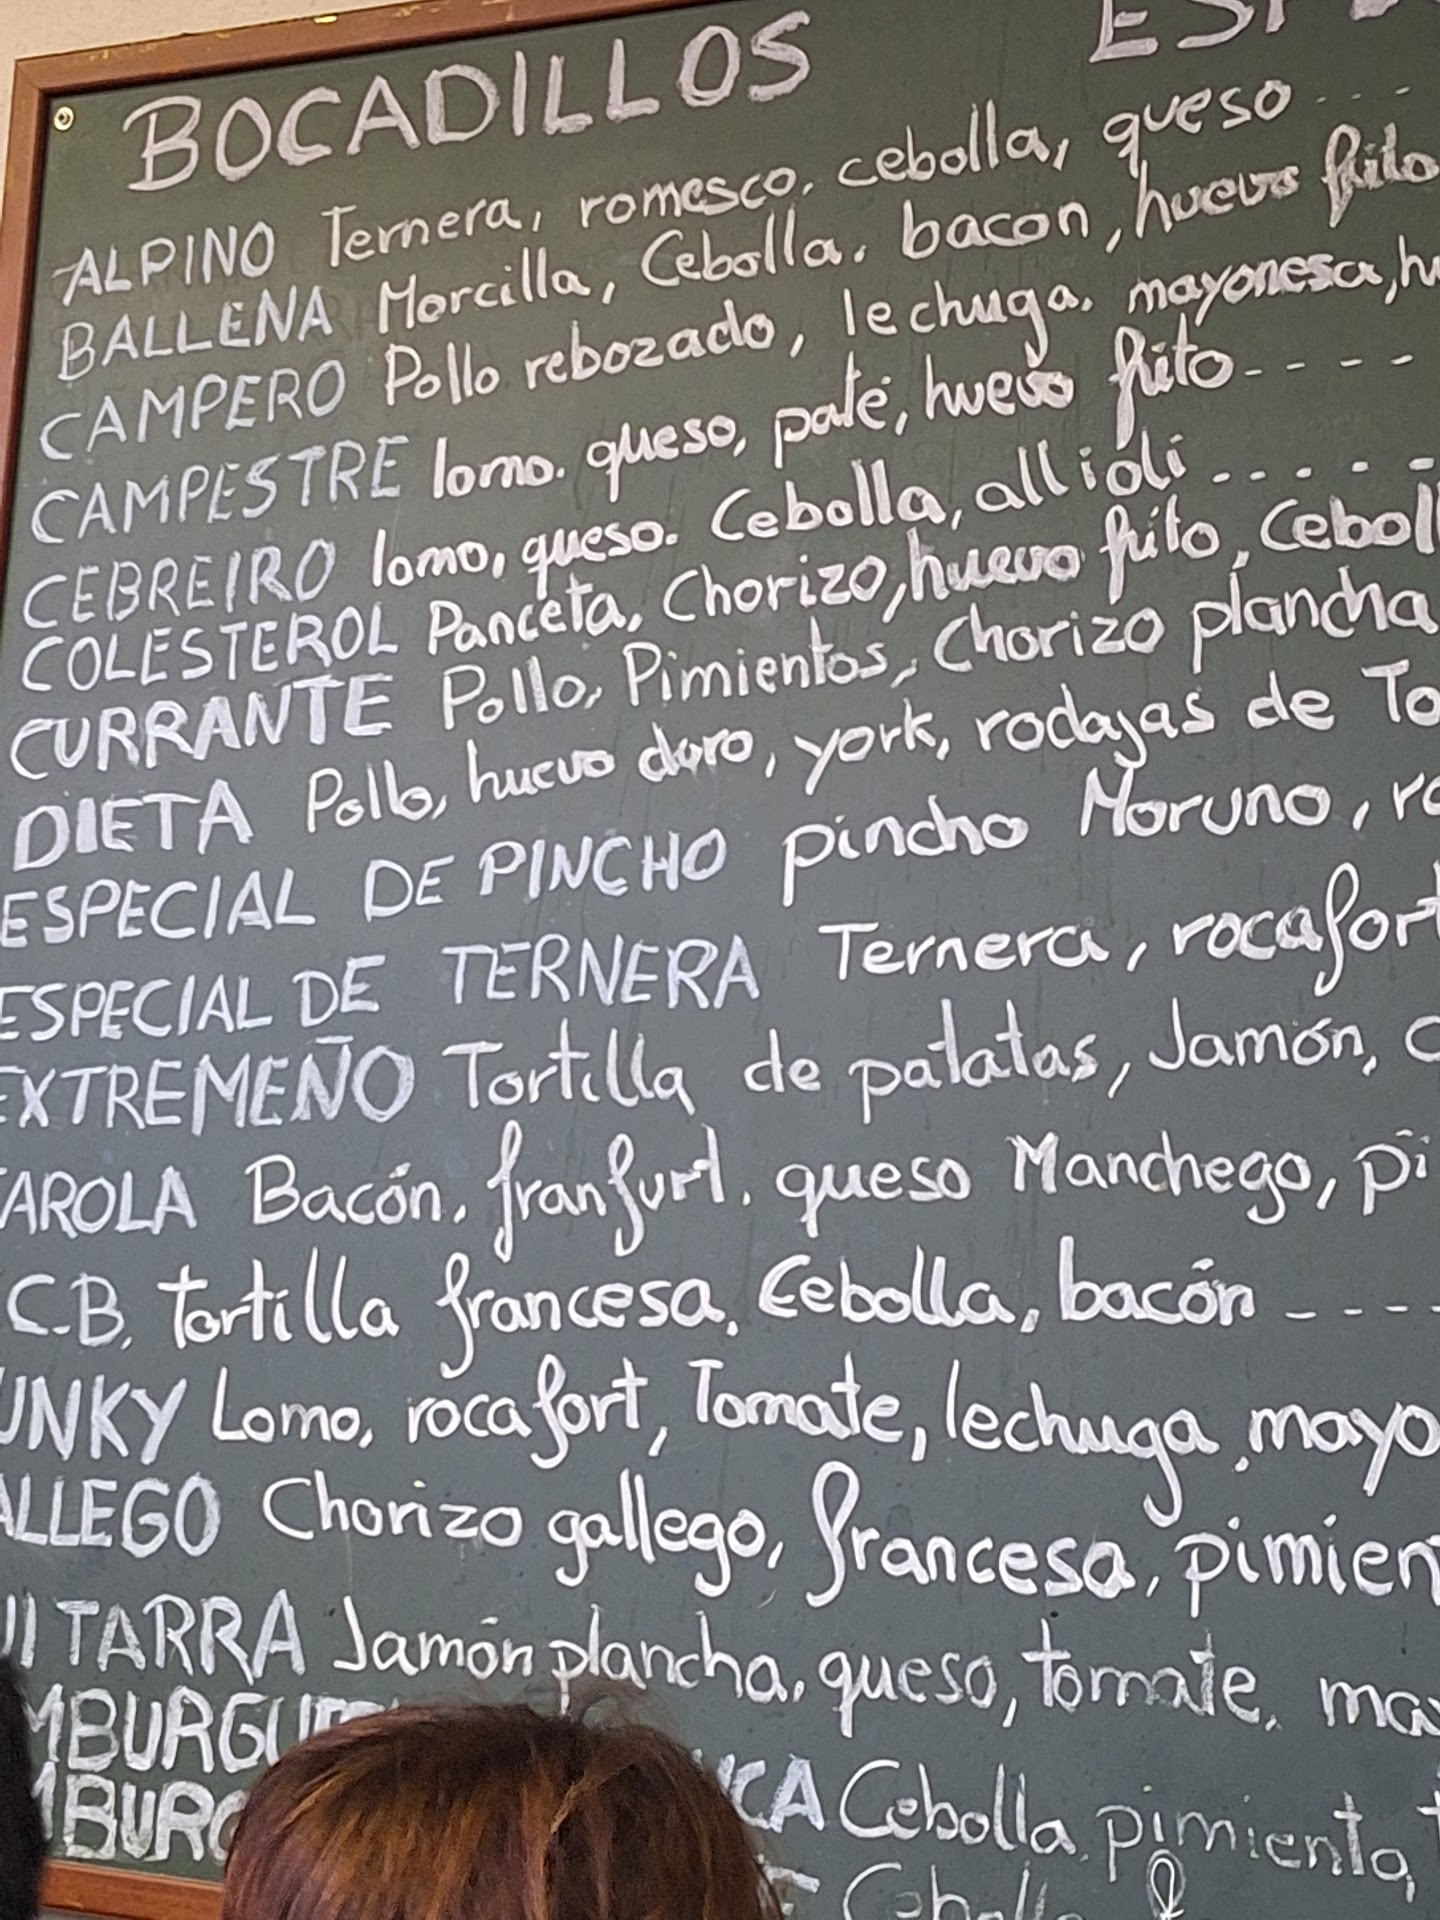 BOCADILLOS
ALPINO Ternera, romesco, cebolla, queso ....
BALLENA Morcilla, Cebolla, bacon, huevo frito
CAMPERO Pollo rebozado, lechuga, mayonesa,
CAMPESTRE lomo. queso, paté, huevo frito - - - -
CEBREIRO lomo, queso. Cebolla, allioli . . . . . .
COLESTEROL Panceta, Chorizo, huevo frito, Ceboll
CURRANTE Pollo, Pimientos, Chorizo plancha
DIETA Pollo, huevo duro, york, rodajas de To
ESPECIAL DE PINCHO pincho Moruno,
ESPECIAL DE TERNERA Ternera, rocafort
EXTREMEÑO Tortilla de patatas, Jamón,
AROLA Bacón, franfurt, queso Manchego, pi
C.B. Tortilla francesa, Cebolla, bacón - - - -
UNKY Lomo, rocafort, Tomate, lechuga, mayo
ALLEGO Chorizo gallego, francesa, pimien
UITARRA Jamón plancha, queso, tomate, ma
MBURGU
MBURG CA Cebolla, pimiento,